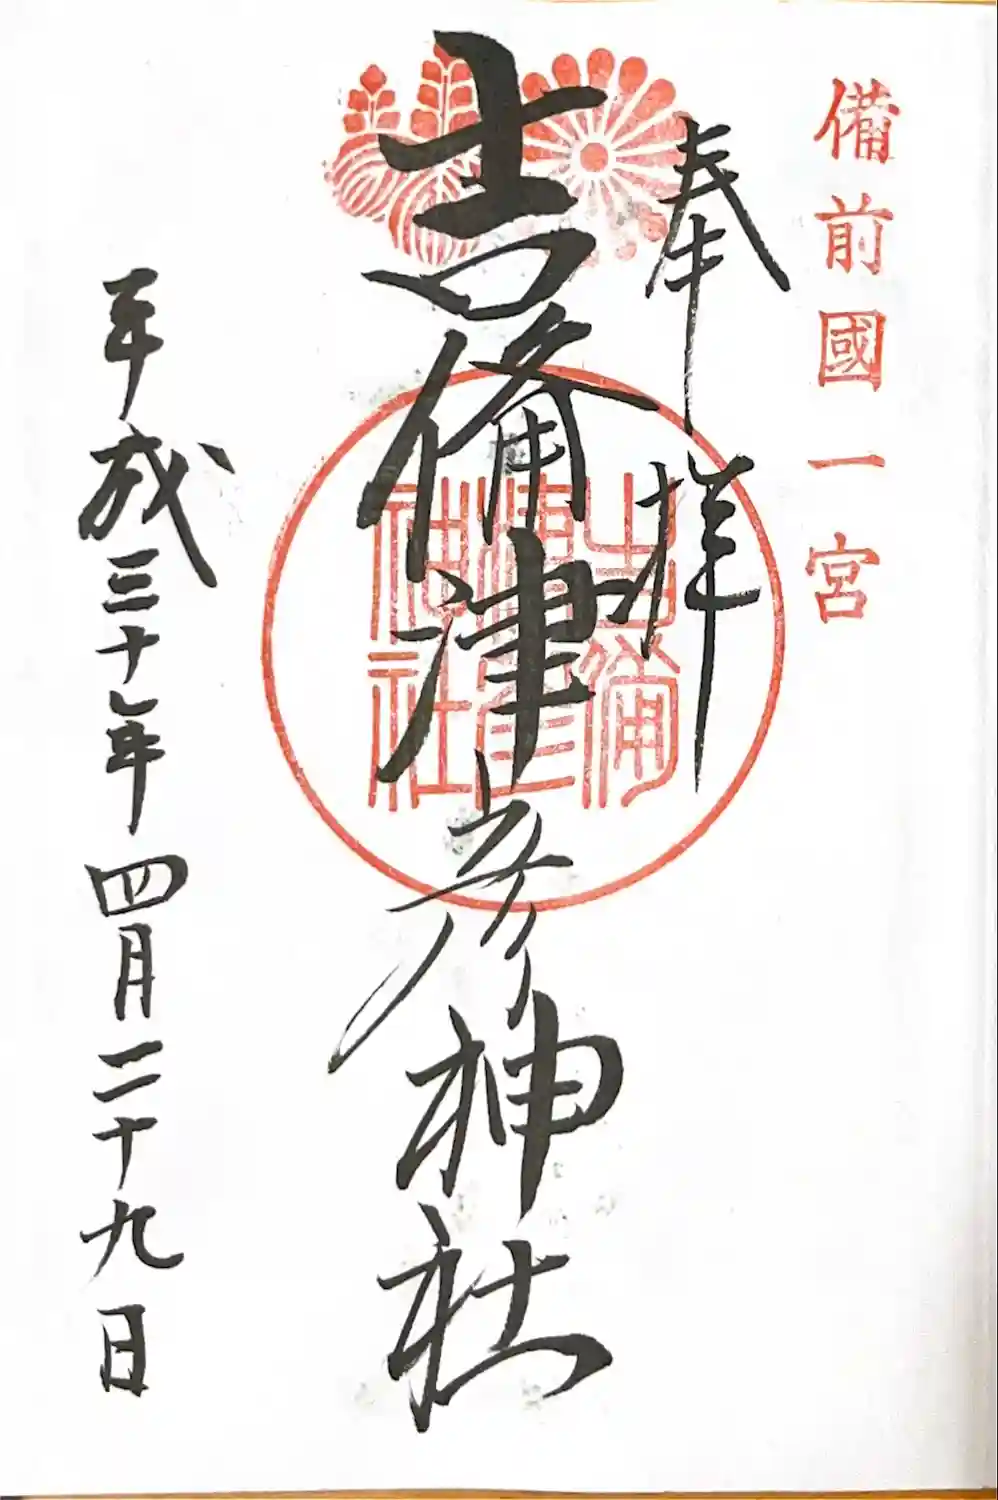 備前國一宮
奉拝
吉備津彦神社
吉備
津彦
神社
平成三十年四月二十九日